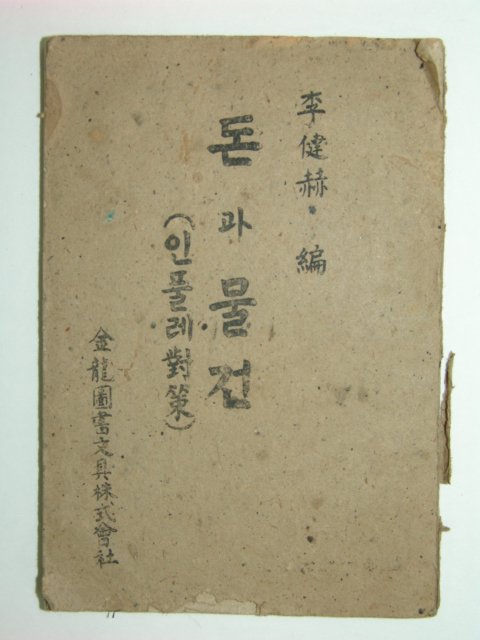 李健赫 編
돈과 물건
(인플레 對策)
金龍圖書文具株式會社